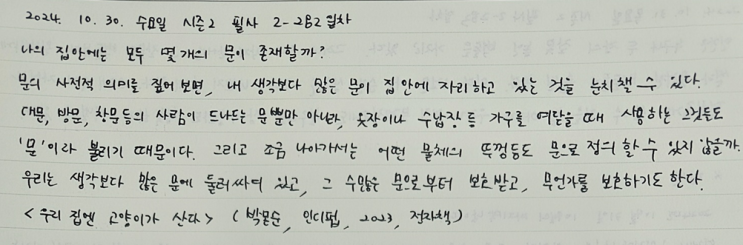 2024. 10. 30. 수요일 시즌2 필사 2-282일차
나의 집안에는 모두 몇 개의 문이 존재할까?
문의 사전적 의미로 짚어 보면, 내 생각보다 많은 문이 집 안에 자리하고 있는 것을 눈치챌 수 있다.
대문, 방문, 창문등의 사람이 드나드는 문뿐만 아니라, 옷장이나 수납장 등 가구를 여닫을 때 사용하는 그것들도
'문'이라 불리기 때문이다. 그리고 조금 나아가서는 어떤 물체의 뚜껑등도 문으로 정의 할 수 있지 않을까.
우리는 생각보다 많은 문에 둘러싸여 있고, 그 수많은 문으로부터 보호받고, 무언가를 보호하기도 한다.
<우리 집엔 고양이가 산다> ( 인디펍, 2023, 전자책)